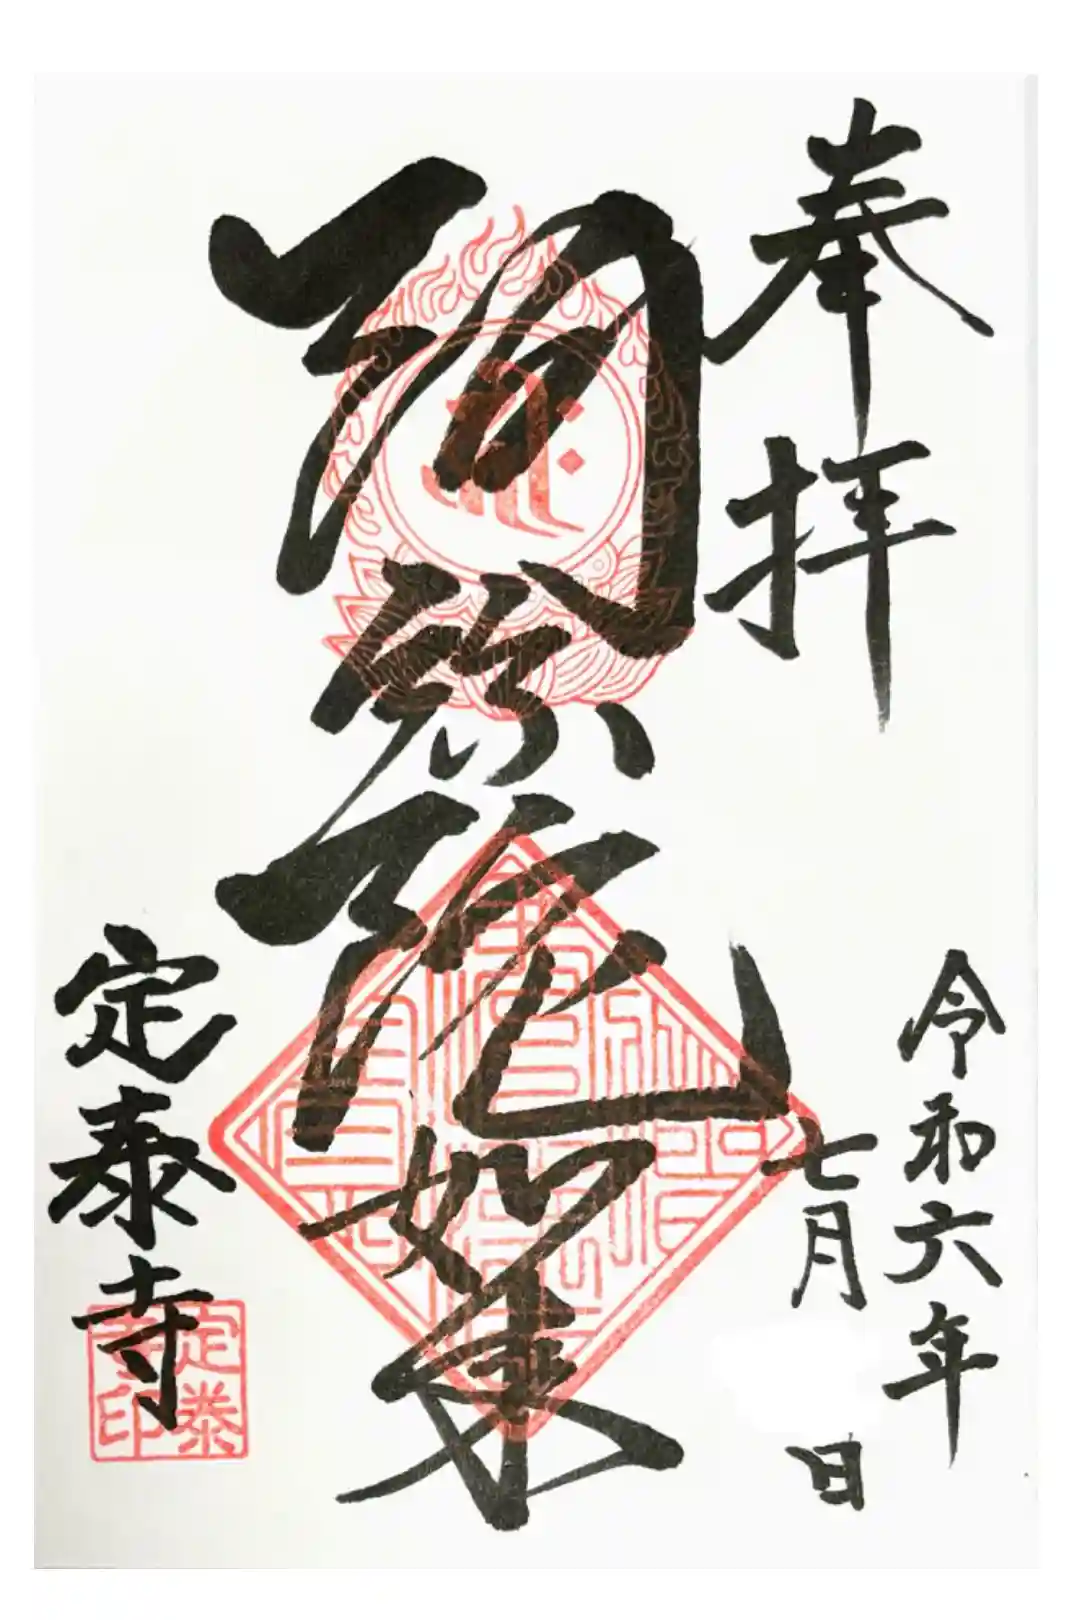 奉拝
令和六年
七月 日
阿弥陀如来
定泰寺
定泰
寺印